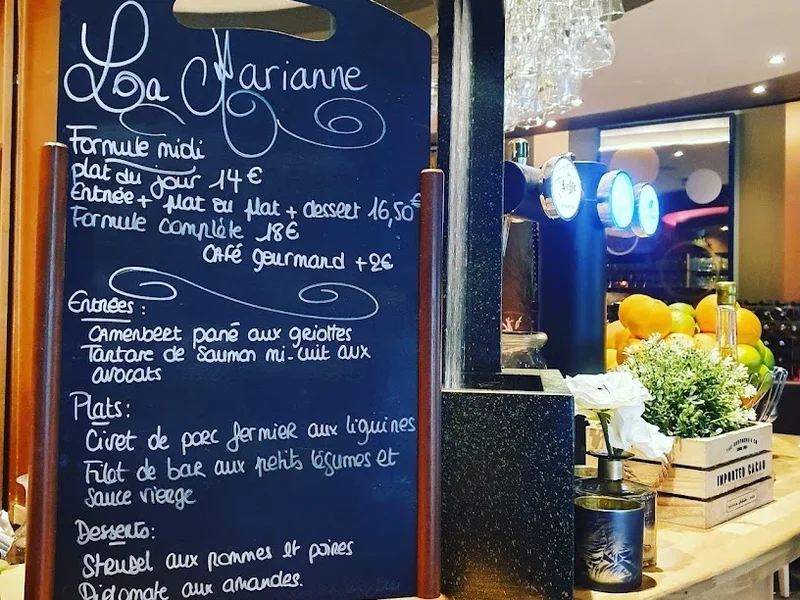 La Marianne
Formule midi
plat du jour 14 €
Entrée + plat ou plat + dessert 16,50€
Formule complète 18€
Café gourmand +2€
Entrées :
Camenbert pané aux griottes
Tartare de Saumon mi-cuit aux
avocats
Plats :
Civet de porc fermier aux liguines
Filet de bar aux petits légumes et
Sauce vierge
Desserts :
Streusel aux pommes et poires
Diplomate aux amandes.
IMPORTED CACAO